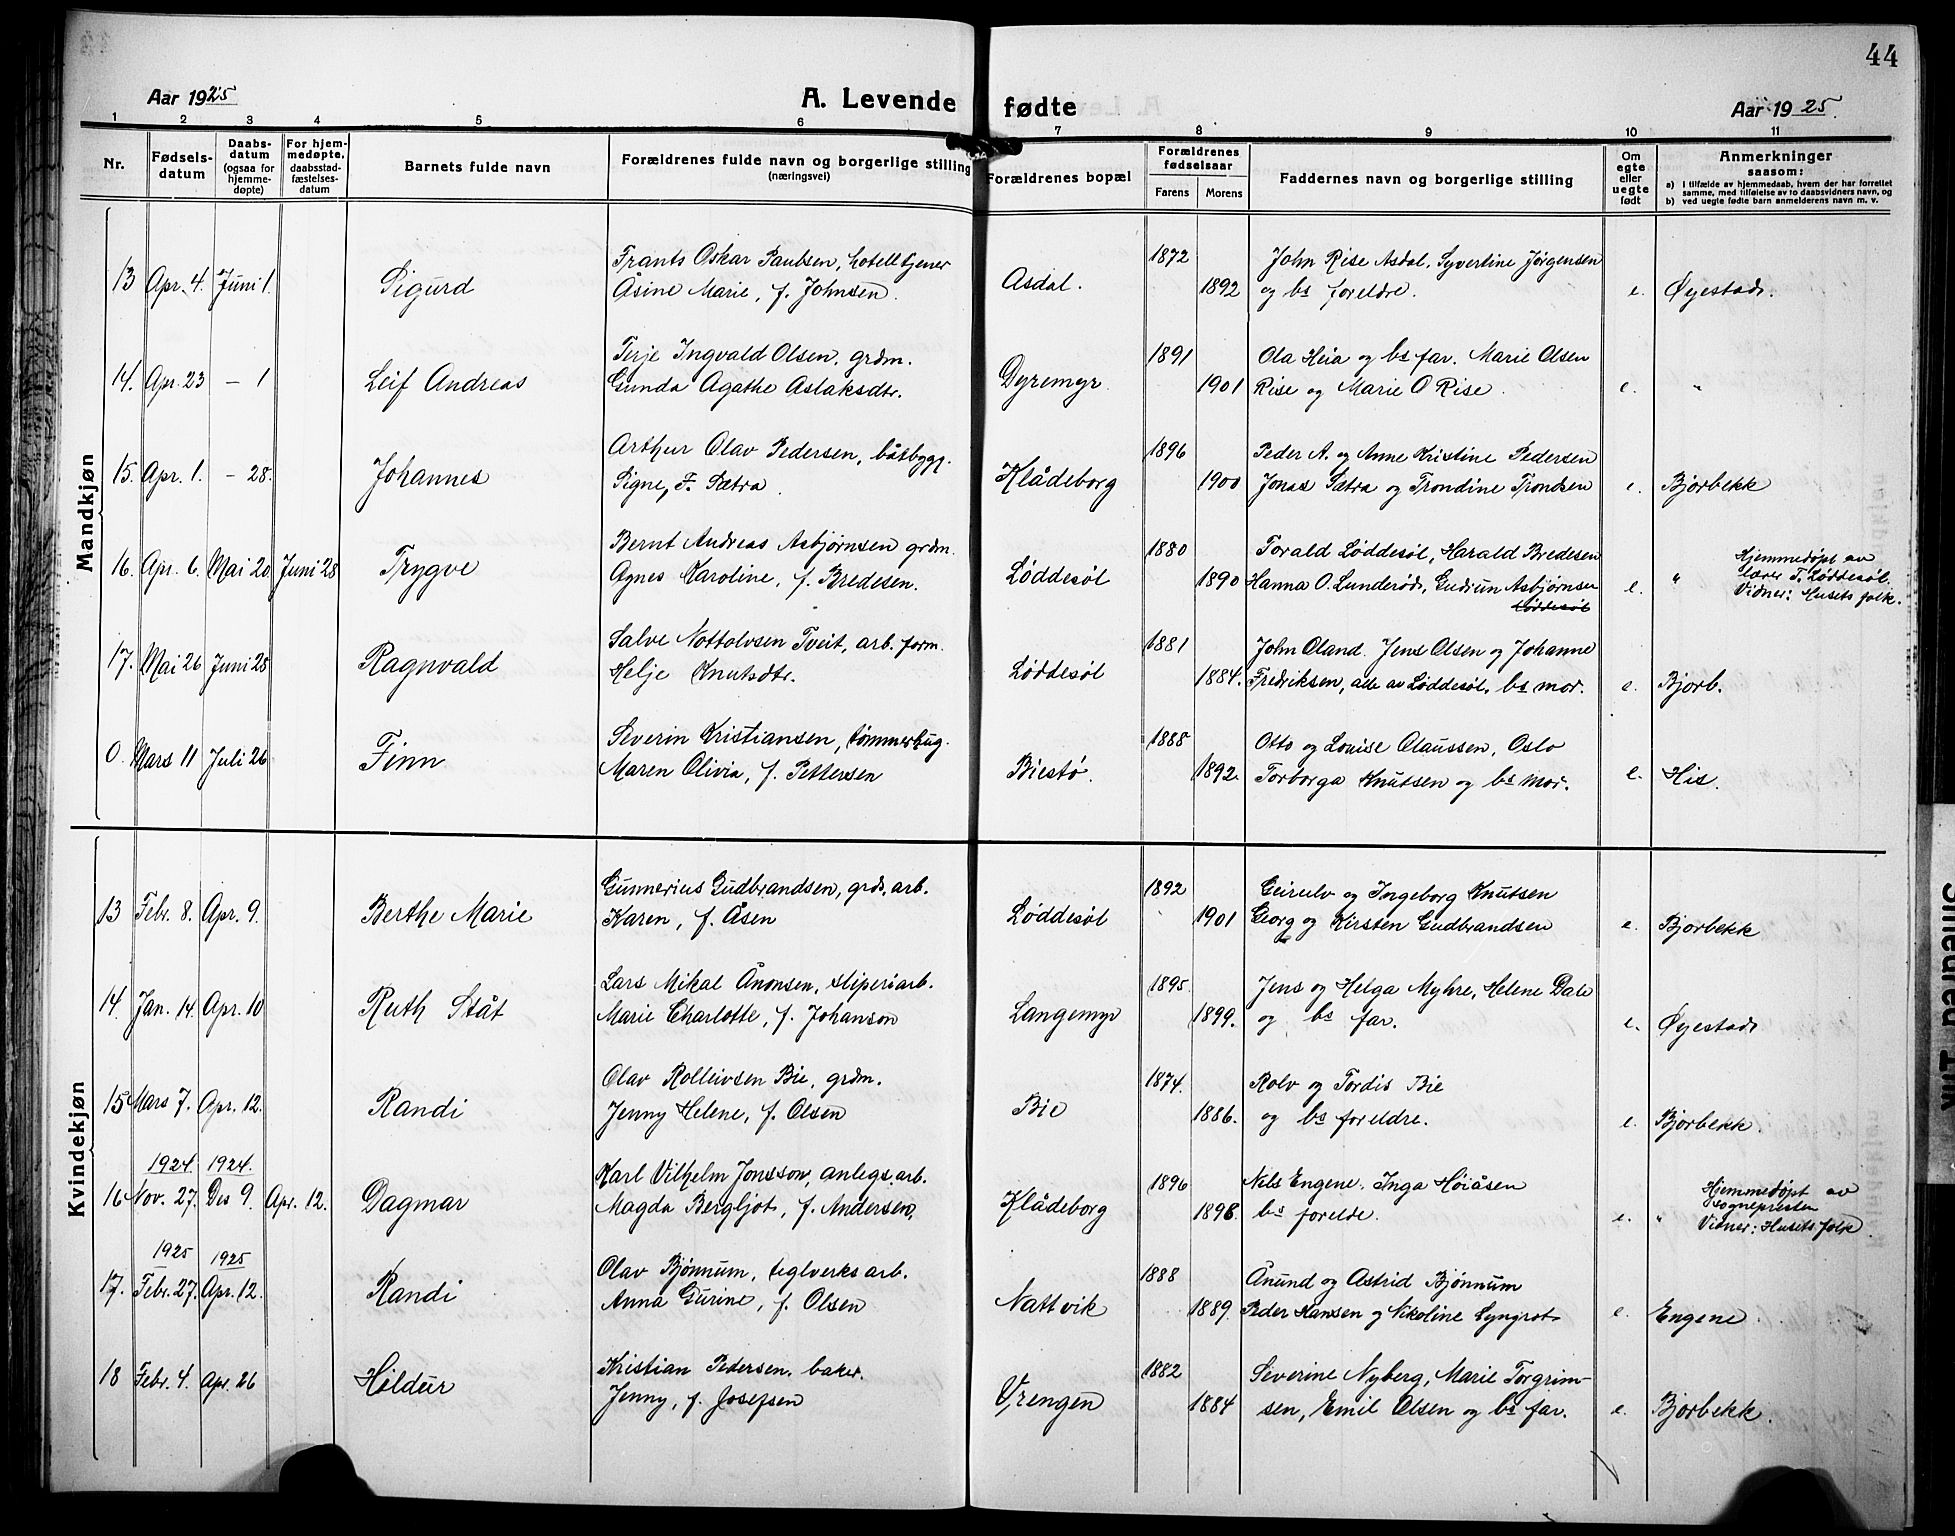 44
Aar 1925
A. Levende fødte
Aar 1925
1 2 3 4 5 6 7 8 9 10 11
Nr.
Fødsels-
datum
Daabs-
datum
(ogsaa for
hjemme-
døpte)
For hjem-
medøpte,
daabsstad-
fæstelses-
datum
Barnets fulde navn
Forældrenes fulde navn og borgerlige stilling
(næringsvei)
Forældrenes bopæl
Forældrenes
fødselsaar
Farens Morens
Faddernes navn og borgerlige stilling
Om
egte
eller
uegte
født
Anmerkninger
saasom:
a) I tilfælde av hjemmedaab, hvem der har forrettet
samme, med tilføielse av to daabsvidners navn, og
b) ved uegte fødte barn anmelderens navn m. v.
Mandkjøn
Frants Oskar Paulsen, hotelltjener 1872 John Rise Asdal, Syvertine Jørgensen
13 Apr. 4. Juni 1. Sigurd Åsine Marie, f. Johnsen. Asdal. 1892 og bs foreldre. e. Øyestad.
Terje Ingvald Olsen, grdm. 1891 Ola Heia og bs far. Marie Olsen
14. Apr. 23 – 1 Leif Andreas Gunda Agathe Aslaksdtr. Dyremyr 1901 Rise og Marie O Rise. e. "
Arthur Olav Pedersen, båtbygg. 1896 Peder A. og Anne Kristine Pedersen
15. Apr. 1. – 28. Johannes Signe, F. Sætra. Klådeborg 1900 Jonas Sætra og Trondine Trondsen e. Bjorbekk
Bernt Andreas Asbjørnsen grdm. 1880 Torald Løddesøl, Harald Bredesen Hjemmedøpt av
16. Apr. 6. Mai 20. Juni 28 Trygve Agnes Karoline, f. Bredesen. Løddesøl 1890 Hanna O. Lunderød, Gudrun Asbjørnsen e. " lærer T. Løddesøl.
Løddesøl Vidner: Husets folk.
Salve Nottolvsen Tveit, arb. form. 1881 John Oland. Jens Olsen og Johanne
17. Mai 26 Juni 28 Ragnvald Helje Knutsdtr. Løddesøl 1884. Fredriksen, alle av Løddesøl, bs mor. e. Bjorb.
Severin Kristiansen, tømmerhug. 1888 Otto og Louise Claussen, Oslo
0. Mars 11 Juli 26 Finn Maren Olivia, f. Pettersen Biestø. 1892. Torborga Knutsen og bs mor. e. His.
Kvindekjøn
Gunnerius Gudbrandsen, grds. arb. 1892 Geirulv og Ingeborg Knutsen
13 Febr. 8. Apr. 9. Berthe Marie Karen, f. Åsen Løddesøl 1901 Georg og Kirsten Gudbrandsen e. Bjorbekk
Lars Mikal Ånonsen, sliperiarb. 1895. Jens og Helga Myhre, Helene Dale
14. Jan. 14. Apr. 10 Ruth Ståt Marie Charlotte, f. Johanson Langemyr 1899. og bs far. e. Øyestad
Olav Rolleivsen Bie, grdm. 1874. Rolv og Tordis Bie
15 Mars 7. Apr. 12. Randi Jenny Helene, f. Olsen Bie 1886. og bs foreldre. e. Bjorbekk.
1924. 1924. Karl Vilhelm Jonsson, anlegs. arb. 1896 Nils Engene. Inga Høiåsen Hjemmedøpt av
16 Nov. 27. Des 9. Apr. 12. Dagmar Magda Bergljot, f. Andersen, Klådeborg 1898. bs forelde. e. " Sognepresten
Vidner: Husets folk.
1925 1925 Olav Bjønnum, teglverks arb. 1888 Ånund og Astrid Bjønnum
17. Febr. 27. Apr. 12. Randi Anna Gurine, f. Olsen Nattvik 1889. Peder Hansen og Nikoline Lyngrot e. Engene.
Kristian Pedersen, baker. 1882 Severine Nyberg, Marie Torgrim-
18 Febr. 4. Apr. 26 Hildur Jenny, f. Josefsen Vrengen 1884 sen, Emil Olsen og bs far. e. Bjorbekk.